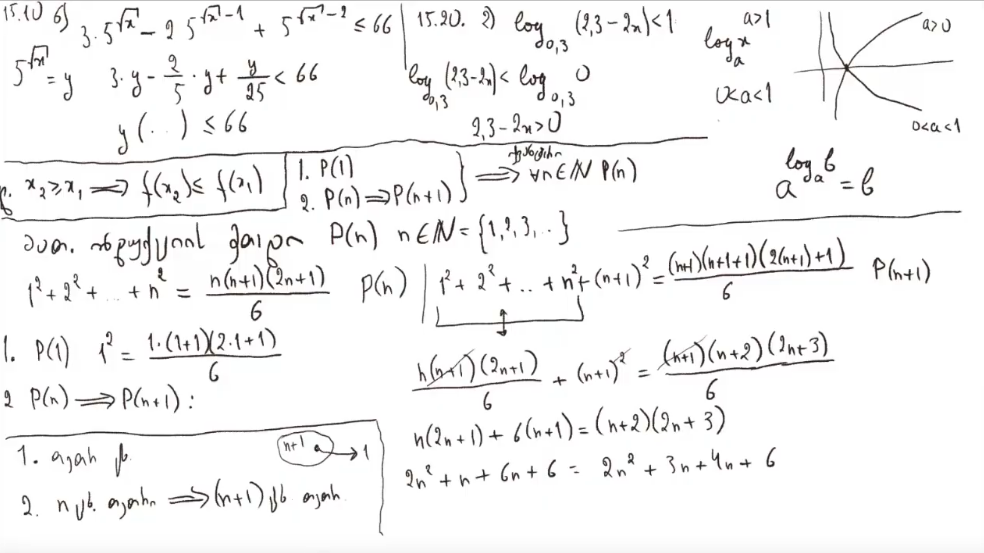 15.10 б) 3·5^√x − 2 5^(√x−1) + 5^(√x−2) ≤ 66
5^√x = y 3·y − 2/5 · y + y/25 < 66
y(...) ≤ 66
15.20. 2) log_0,3 (2,3−2x) < 1
log_0,3 (2,3−2x) < log_0,3 0
2,3−2x > 0
a>1
log_a x
0<a<1
a>0
0<a<1
a^(log_a b) = b
x₂ ≥ x₁ ⟹ f(x₂) ≤ f(x₁)
1. P(1)
2. P(n) ⟹ P(n+1)
⟹ ∀n∈ℕ P(n)
მათ. ინდუქციის P(n) n∈ℕ = {1,2,3,..}
1² + 2² + ... + n² = n(n+1)(2n+1)/6 P(n)
1² + 2² + .. + n² + (n+1)² = (n+1)(n+1+1)(2(n+1)+1)/6 P(n+1)
1. P(1) 1² = 1·(1+1)(2·1+1)/6
2 P(n) ⟹ P(n+1) :
n(n+1)(2n+1)/6 + (n+1)² = (n+1)(n+2)(2n+3)/6
n(2n+1) + 6(n+1) = (n+2)(2n+3)
2n² + n + 6n + 6 = 2n² + 3n + 4n + 6
1.
n+1 → 1
2. n ⟹ (n+1)